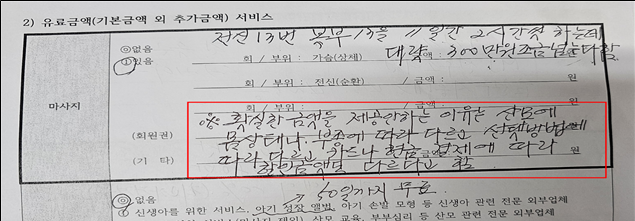 2) 유료금액(기본금액 외 추가금액) 서비스
전신 13번 복부 13을 11일간 2시간씩 하는데
◎없음
대략 300만원 조금 넘는다함
① 있음
회 / 부위 : 가슴(상체) 금액 : 원
회 / 부위 : 전신(순환) / 금액 : 원
마사지
회 / 부위 : / 금액 : 원
※ 확실한 금액을 제공안하는 이유는 산모에
(회원권)
몸상태나 부종에 따라 다르고 선택방법에
따라 다르고 카드나 현금 결제에 따라
(기 타)
할인금액도 다르다고 함
원
60일까지 무료
◎ 없음
① 신생아를 위한 서비스, 아기 성장 앨범, 아기 손발 모형 등 신생아 관련 전문 외부업체
산모 교육, 부부심리 등 산모 관련 전문 외부업체